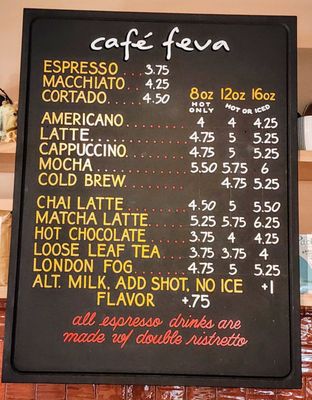 café feva
ESPRESSO 3.75
MACCHIATO 4.25
CORTADO 4.50
8oz 12oz 16oz
HOT ONLY HOT OR ICED
AMERICANO 4 4 4.25
LATTE 4.75 5 5.25
CAPPUCCINO 4.75 5 5.25
MOCHA 5.50 5.75 6
COLD BREW 4.75 5.25
CHAI LATTE 4.50 5 5.50
MATCHA LATTE 5.25 5.75 6.25
HOT CHOCOLATE 3.75 4 4.25
LOOSE LEAF TEA 3.75 3.75 4
LONDON FOG 4.75 5 5.25
ALT. MILK, ADD SHOT, NO ICE +1
FLAVOR +.75
all espresso drinks are
made w/ double ristretto